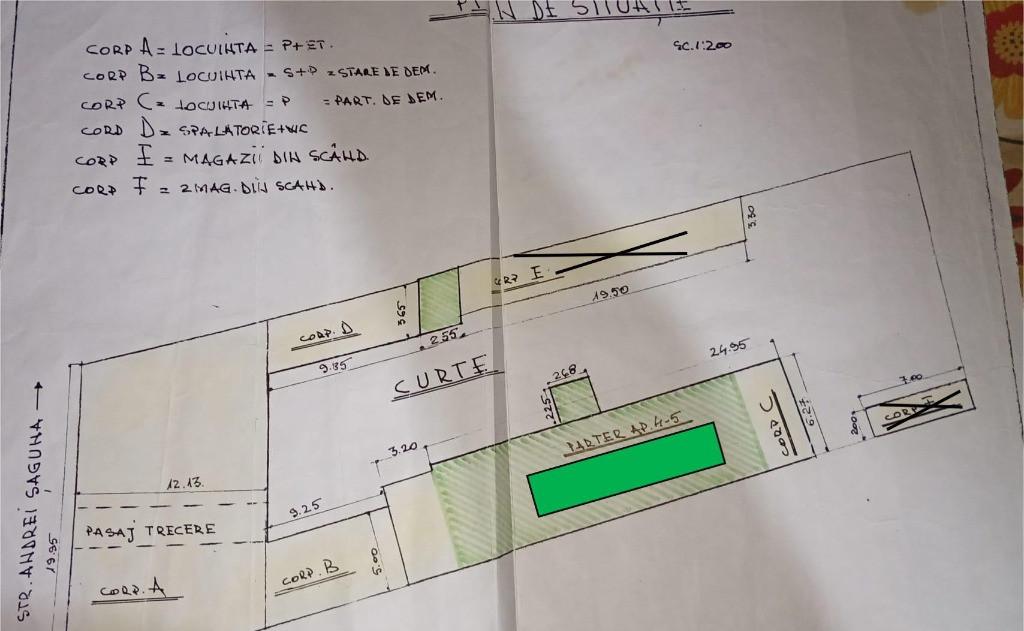 PLAN DE SITUAȚIE
SC.1:200
CORP A = LOCUINTA = P+ET.
CORP B = LOCUINTA = S+P = STARE DE DEM.
CORP C = LOCUINTA = P = PART. DE DEM.
CORP D = SPALATORIE+WC
CORP E = MAGAZII DIN SCÂND.
CORP F = 2 MAG. DIN SCAND.
3.30
CORP E.
19.50
3.65
CORP. D
2.55
9.85
CURTE
24.95
2.68
2.25
PARTER AP. 4-5
CORP C
6.27
7.00
2.00
CORP. F
3.20
STR. ANDREI ȘAGUNA
12.13
9.25
PASAJ TRECERE
19.95
CORP. A
CORP. B
5.00